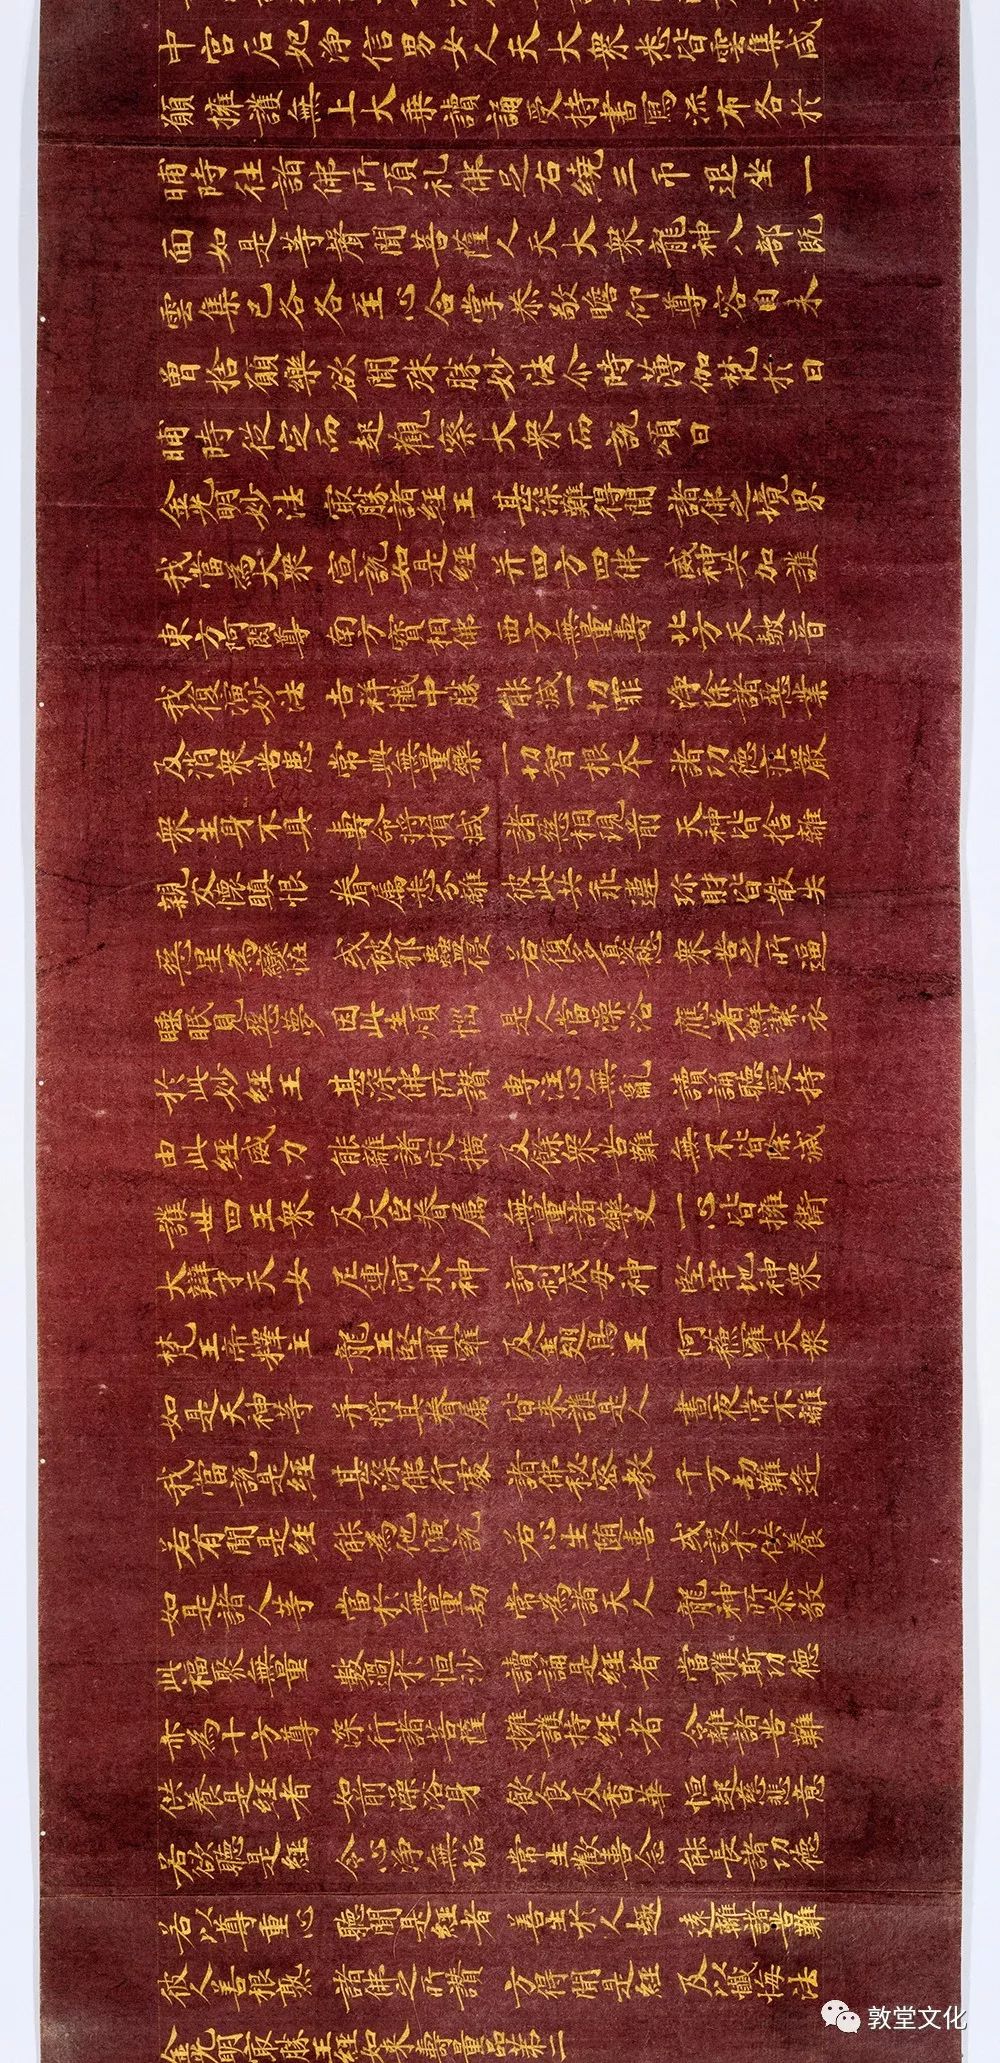 中宮后妃淨信男女人天大眾悉皆雲集咸
願擁護無上大乘讀誦受持書寫流布各於
晡時往詣佛所頂礼佛足右繞三帀退坐一
面如是等聲聞菩薩人天大眾龍神八部既
雲集已各各至心合掌恭敬瞻仰尊容目未
曾捨願樂欲聞殊勝妙法尒時薄伽梵於日
晡時從定而起觀察大眾而說頌曰
金光明妙法　最勝諸經王　甚深難得聞　諸佛之境界
我當為大眾　宣說如是經　并四方四佛　威神共加護
東方阿閦尊　南方寶相佛　西方無量壽　北方天鼓音
我復演妙法　吉祥懺中勝　能滅一切罪　淨除諸惡業
及消眾苦患　常與無量樂　一切智根本　諸功德莊嚴
眾生身不具　壽命將損減　諸惡相現前　天神皆捨離
親友懷瞋恨　眷屬悉分離　彼此共乖違　珍財皆散失
惡星為變怪　或被邪蠱侵　若復多憂愁　眾苦之所逼
睡眠見惡夢　因此生煩惱　是人當澡浴　應著鮮潔衣
於此妙經王　甚深佛所讚　專注心無亂　讀誦聽受持
由此經威力　能離諸災橫　及餘眾苦難　無不皆除滅
護世四王眾　及大臣眷屬　無量諸藥叉　一心皆擁衛
大辯才天女　尼連河水神　訶利底母神　堅牢地神眾
梵王帝釋主　龍王緊那羅　及金翅鳥王　阿蘇羅天眾
如是天神等　并將其眷屬　皆來護是人　晝夜常不離
我當說是經　甚深佛行處　諸佛秘密教　千万劫難逢
若有聞是經　能為他演說　若心生隨喜　或設於供養
如是諸人等　當於無量劫　常為諸天人　龍神所恭敬
此福聚無量　數過於恒沙　讀誦是經者　當獲斯功德
亦為十方尊　深行諸菩薩　擁護持經者　令離諸苦難
供養是經者　如前澡浴身　飲食及香華　恒起慈悲意
若欲聽是經　令心淨無垢　常生歡喜念　能長諸功德
若以尊重心　聽聞是經者　善生於人趣　遠離諸苦難
彼人善根熟　諸佛之所讚　方得聞是經　及以懺悔法
金光明最勝王經如來壽量品第二
敦堂文化